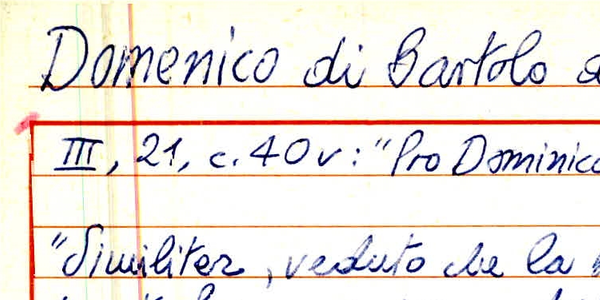 Domenico di Bartolo
III, 21, c. 40v: "Pro Dominico
"Similiter, veduto che la